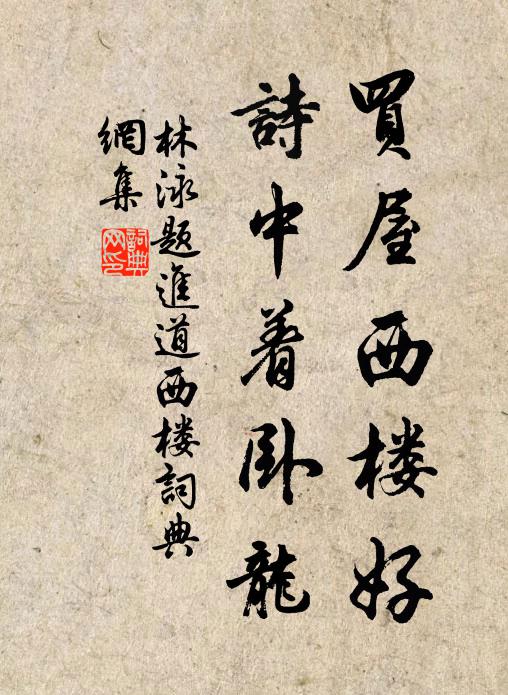 買屋西楼好
詩中着卧龍
林泳题進道西楼詞典
網集
詞典
网印